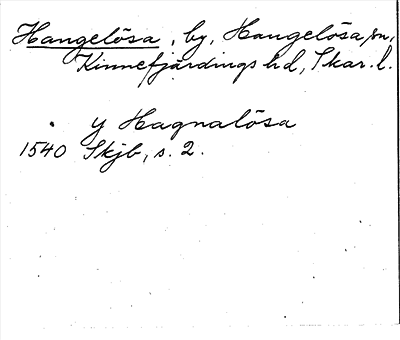 Hangelösa, by, Hangelösa sn,
Kinnefjärdings hd, Skar. l.
y Hagnalösa
1540 Skjb, s. 2.